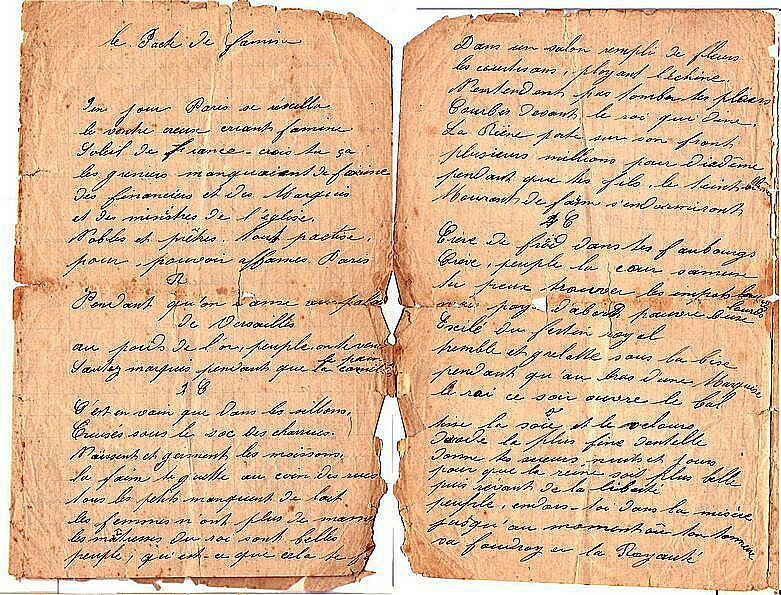 le Pacte de famine
Un jour Paris se réveilla
le ventre creux criant famine
Soleil de France - crois tu ça
les greniers manquaient de farine
des financiers et des Marquis
et des ministres de l'église,
Nobles et prêtres, tout pactise,
pour pouvoir affamer Paris
R
Pendant qu'on danse au palais
de Versailles
au poids de l'or, peuple, on te vend
le pain
Sautez marquis pendant que la
2 C
C'est en vain que dans les sillons,
Creusés sous le soc des charrues
Naissent et germent les moissons,
la faim te guette au coin des rues
tous les petits manquent de lait
les femmes n'ont plus de
les maîtresses du roi sont belles
peuple, qu'est-ce que cela te f
Dans un salon rempli de fleurs
les courtisans, ployant l'échine,
N'entendent pas tomber tes pleurs
Courbés devant le roi qui dine,
La Reine porte sur son front
plusieurs millions pour diadème
pendant que tes fils, le teint blême
Mourant de faim s'endormiront
3 C
Crève de froid dans tes faubourgs
Crève, peuple la cour s'amuse
tu peux trouver les impots lourds
mais paye d'abord, pauvre
Exclu du festin royal
tremble et grelotte sous la bise
pendant qu'au bras d'une Marquise
le roi ce soir ouvre le bal
tisse la soie, et le velours
la plus fine dentelle
donne tes sueurs nuits et jours
pour que la reine soit plus belle
puis rêvant de la liberté
peuple, endors-toi dans la misère
jusqu'au moment où ton tonnerre
va foudroyer la Royauté